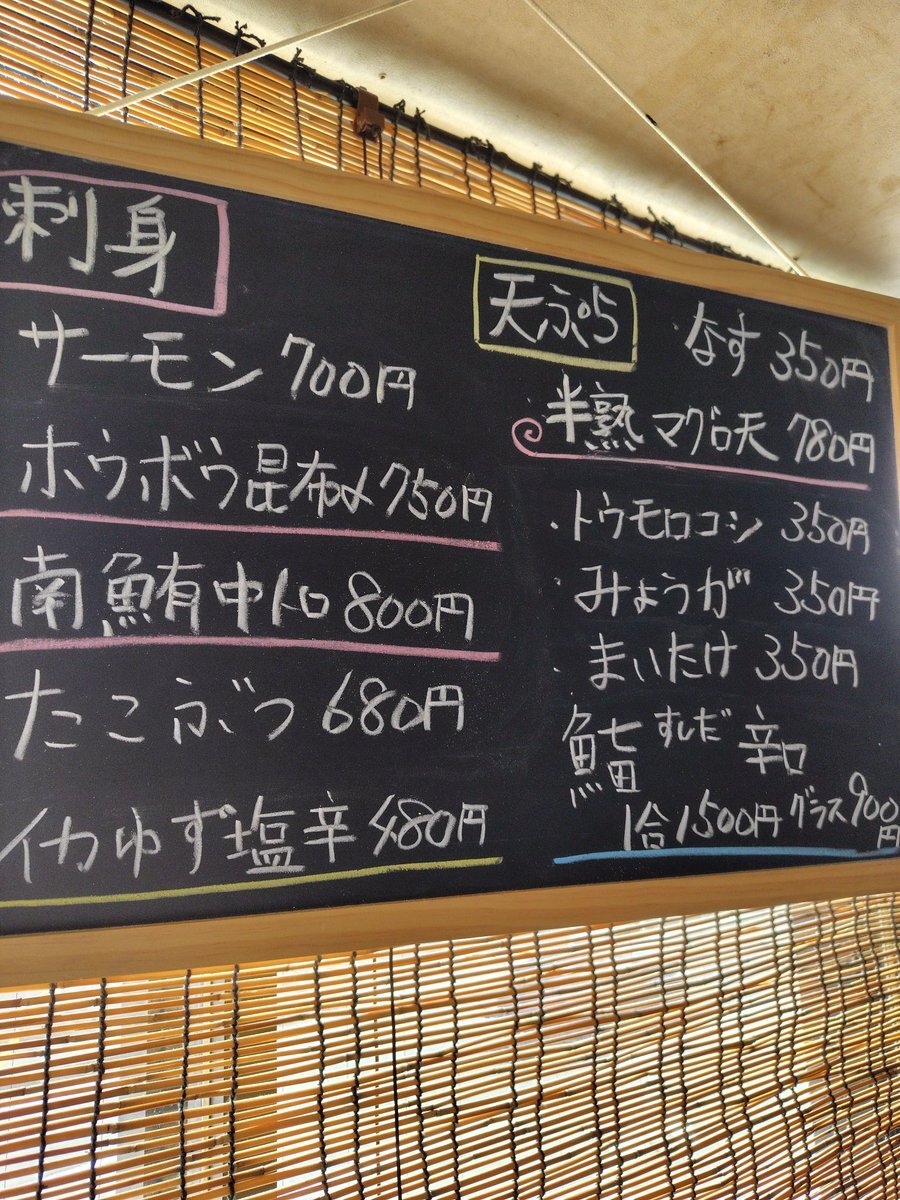 刺身
サーモン 700円
ホウボウ昆布〆750円
南鮪中トロ 800円
たこぶつ 680円
イカゆず塩辛 480円
天ぷら
・なす 350円
・半熟マグロ天 780円
・トウモロコシ 350円
・みょうが 350円
・まいたけ 350円
すしだ 辛口
1合1500円 グラス900円